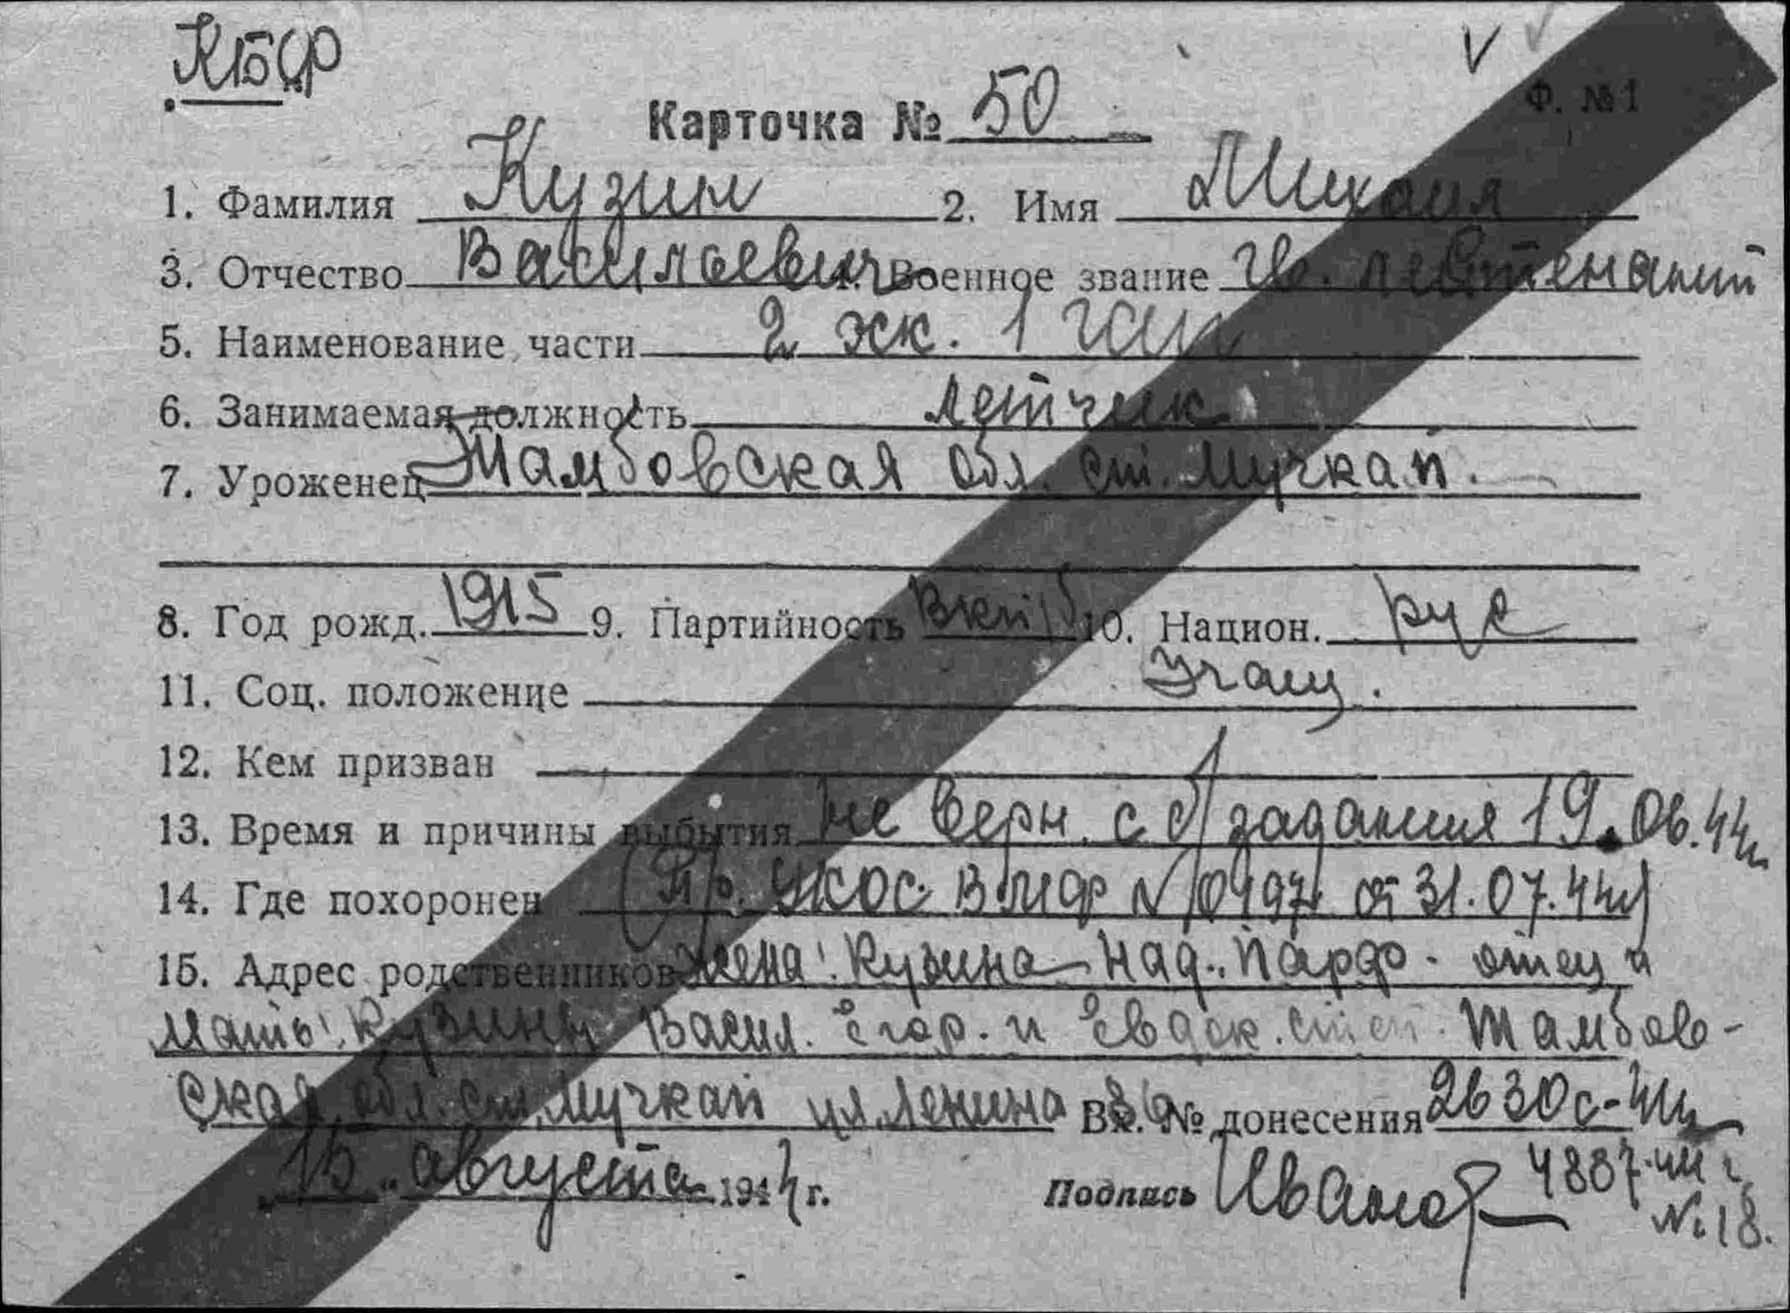 КБФ
Ф. №1
Карточка № 50
1. Фамилия Кузин 2. Имя Михаил
3. Отчество Васильевич 4. Военное звание гв. лейтенант
5. Наименование части 2 эск. 1 гап
6. Занимаемая должность летчик
7. Уроженец Тамбовская обл. ст. Мучкап.
8. Год рожд. 1915 9. Партийность ВКП/б 10. Национ. рус
11. Соц. положение Учащ.
12. Кем призван
13. Время и причины выбытия не верн. с б/задания 19.06.44г
14. Где похоронен (Пр. УКОС ВМФ № 0497 от 31.07.44г)
15. Адрес родственников жена: Кузина Над. Парф. отец и
мать: Кузины Васил. Егор. и Евдок. Степ. Тамбов-
ская обл. ст. Мучкап ул Ленина Вх. № донесения 2630с-44г
"15" августа 1944 г. Подпись Иванов 4887-44г
№ 18.